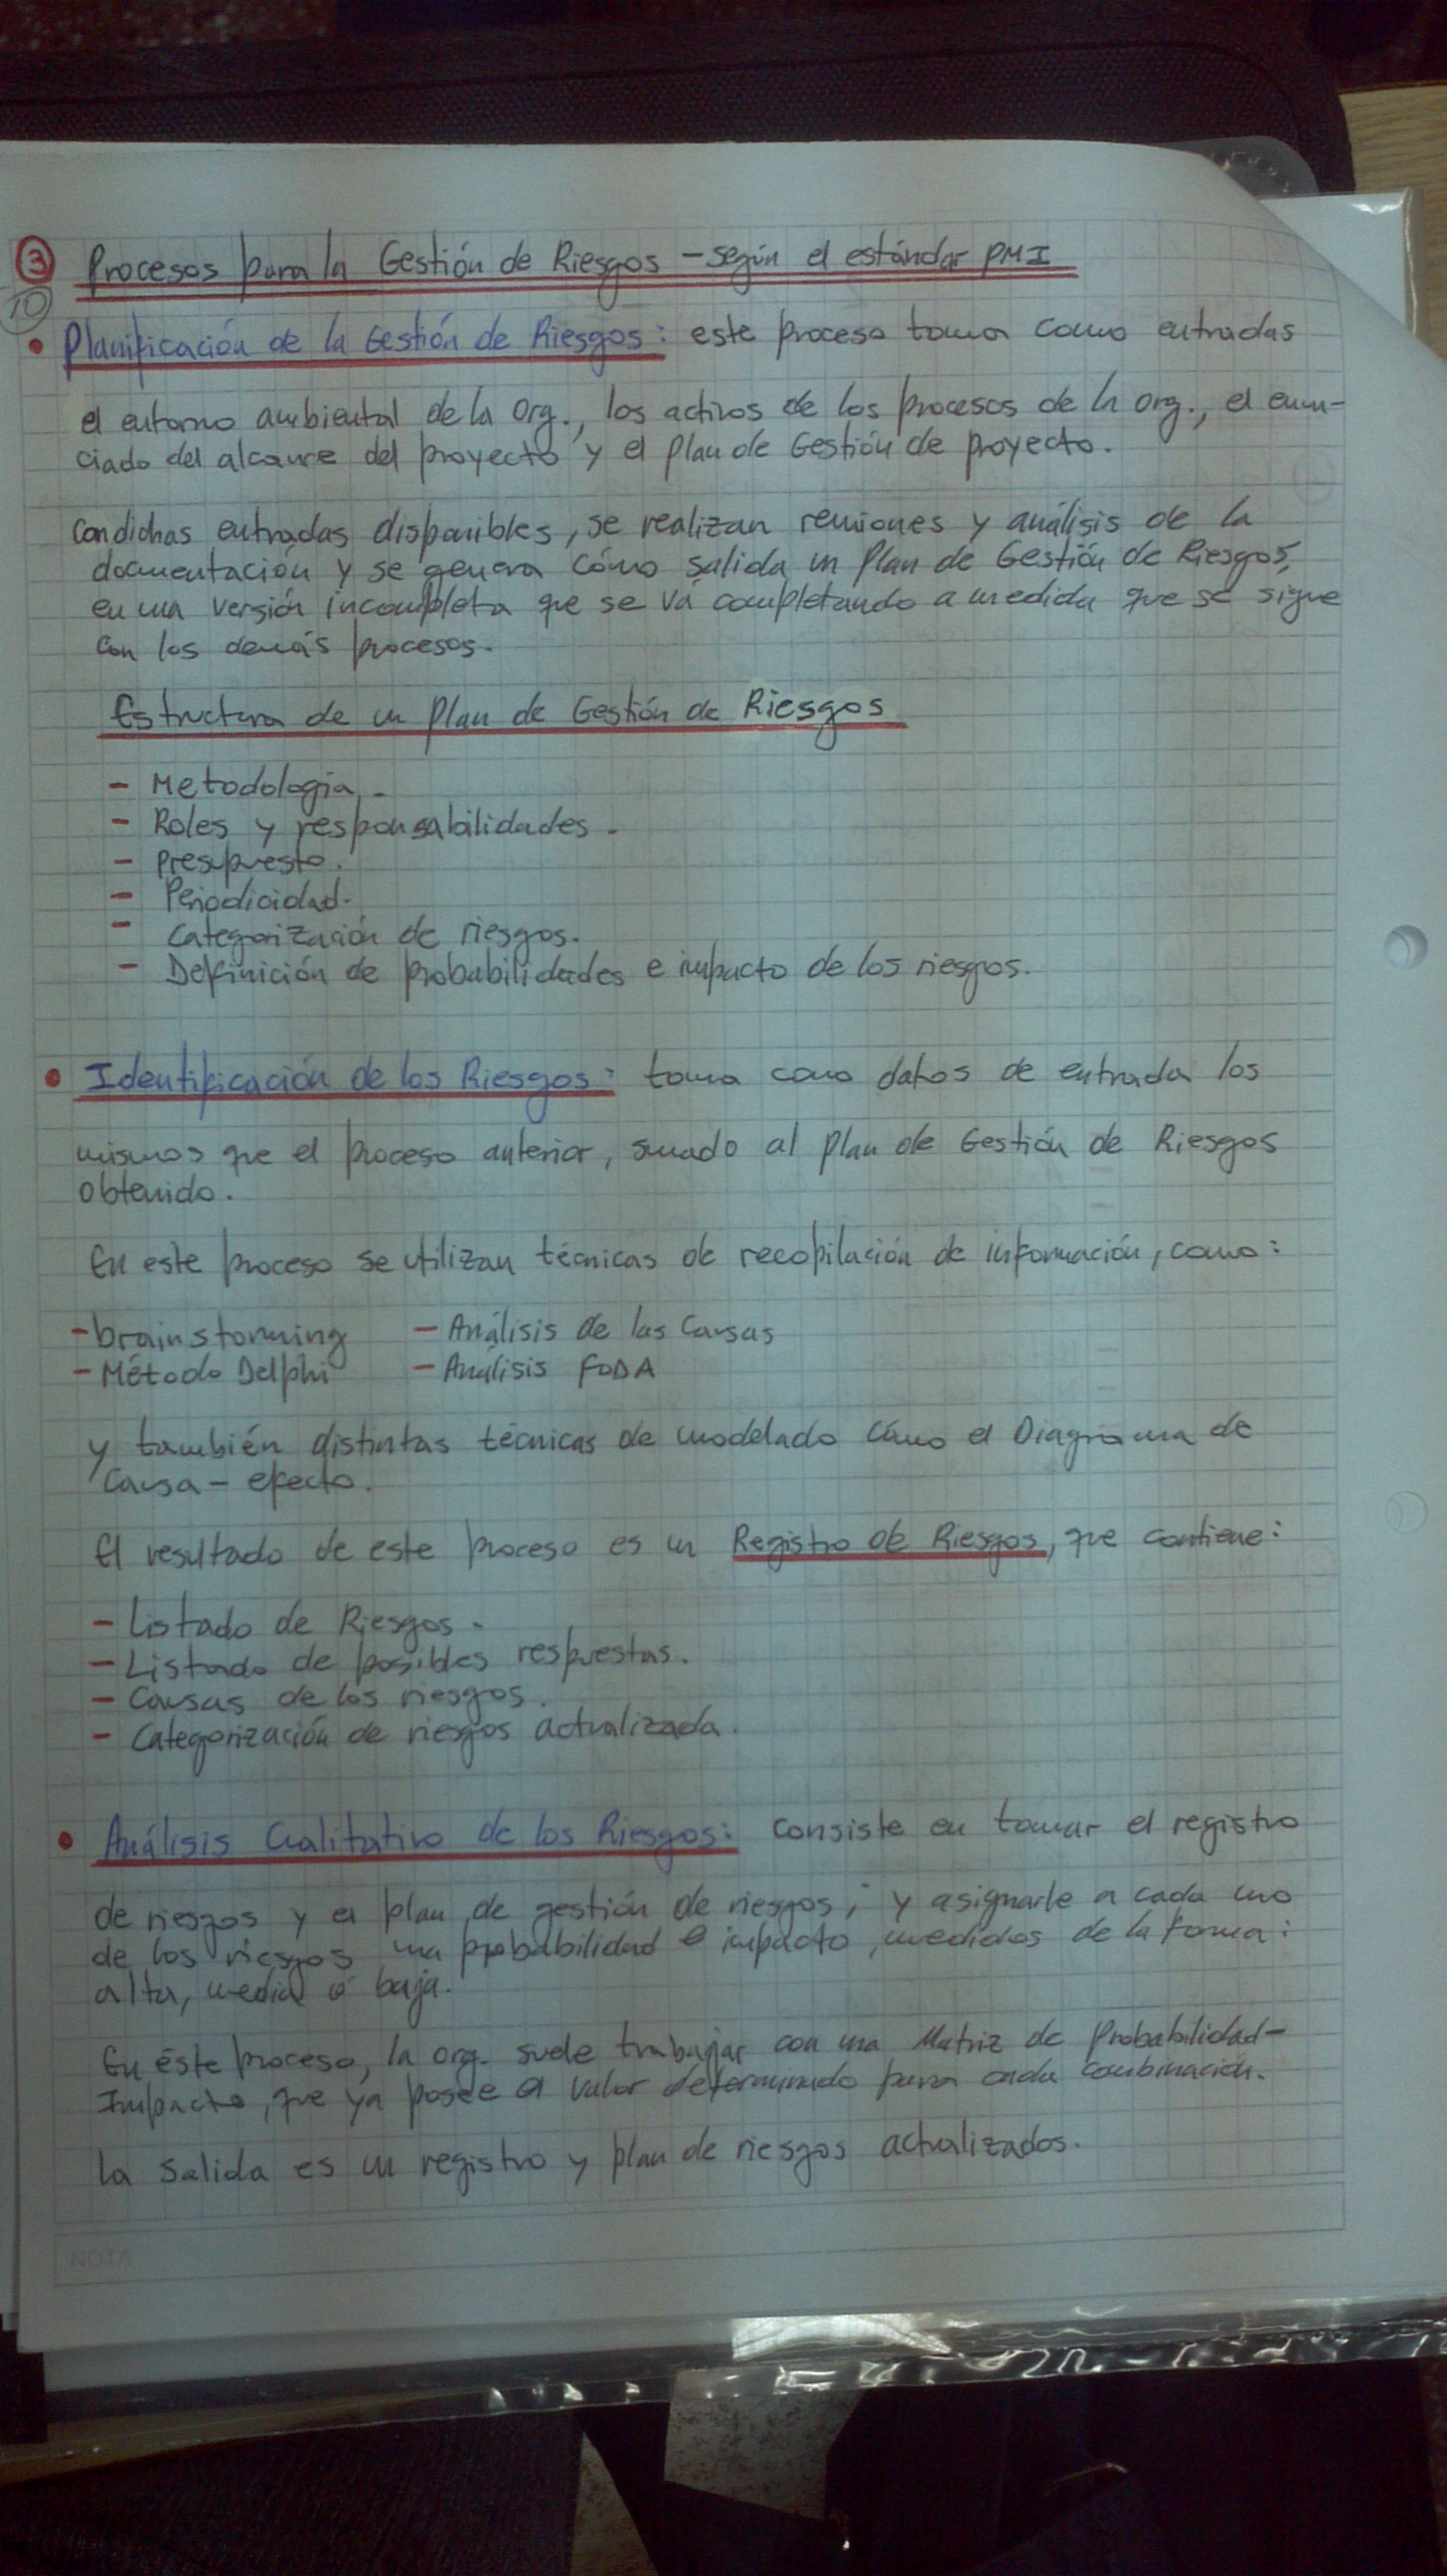 3 Procesos para la Gestión de Riesgos - según el estándar PMI
10
• Planificación de la Gestión de Riesgos: este proceso toma como entradas
el entorno ambiental de la org., los activos de los procesos de la org., el enun-
ciado del alcance del proyecto y el Plan de Gestión de proyecto.
Con dichas entradas disponibles, se realizan reuniones y análisis de la
documentación y se genera cómo salida un Plan de Gestión de Riesgos,
en una versión incompleta que se vá completando a medida que se sigue
con los demás procesos.
Estructura de un Plan de Gestión de Riesgos
- Metodología.
- Roles y responsabilidades.
- Presupuesto.
- Periodicidad.
- Categorización de riesgos.
- Definición de probabilidades e impacto de los riesgos.
• Identificación de los Riesgos: toma como datos de entrada los
mismos que el proceso anterior, sumado al Plan de Gestión de Riesgos
obtenido.
En este proceso se utilizan técnicas de recopilación de información, como:
- brainstorming - Análisis de las Causas
- Método Delphi - Análisis FODA
y también distintas técnicas de modelado cómo el Diagrama de
Causa - efecto.
El resultado de este proceso es un Registro de Riesgos, que contiene:
- Listado de Riesgos.
- Listado de posibles respuestas.
- Causas de los riesgos.
- Categorización de riesgos actualizada.
• Análisis Cualitativo de los Riesgos: consiste en tomar el registro
de riesgos y el plan de gestión de riesgos, y asignarle a cada uno
de los riesgos una probabilidad e impacto, medidos de la forma:
alta, media ó baja.
En éste proceso, la org. suele trabajar con una Matriz de Probabilidad-
Impacto, que ya posee el valor determinado para cada combinación.
La salida es un registro y plan de riesgos actualizados.
NOTA